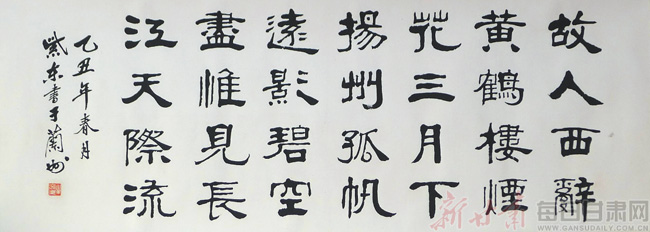 故人西辭
黃鶴樓煙
花三月下
揚州孤帆
遠影碧空
盡惟見長
江天際流
乙丑年春月
紫东書于蘭州
新甘肃
每日甘肃网
WWW.GANSUDAILY.COM.CN